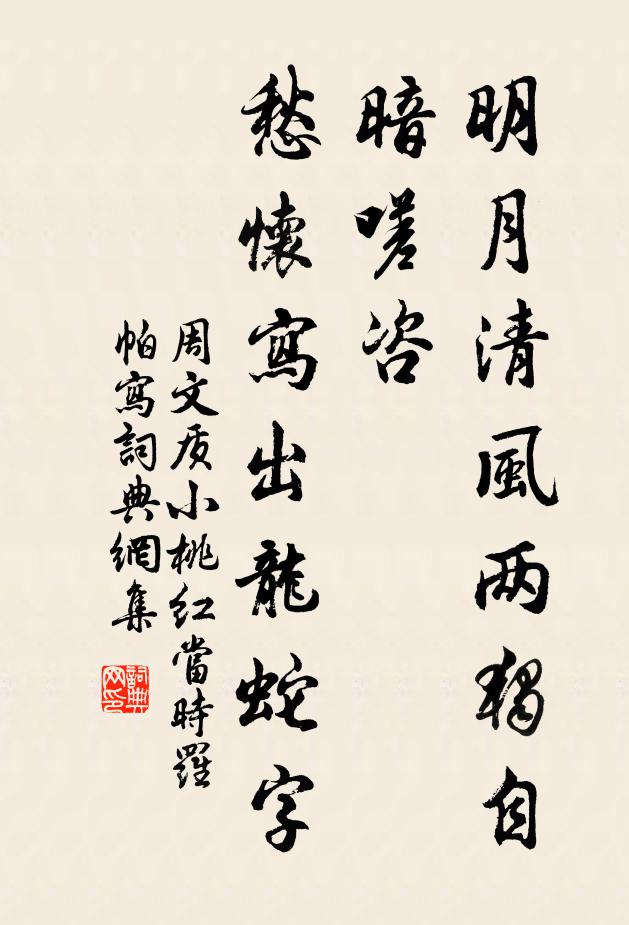 明月清風两獨自
暗嗟咨
愁懷寫出龍蛇字
周文质小桃红當時羅
帕寫詞典網集
詞典网印